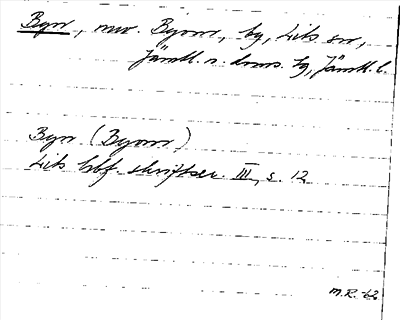 Byn, nuv. Byom, by, Lits sn,
Jämtl. n. doms. hg, Jämtl. l.
Byn (Byom)
Lits hbf. skriftser. III, s. 12
M.R. -62